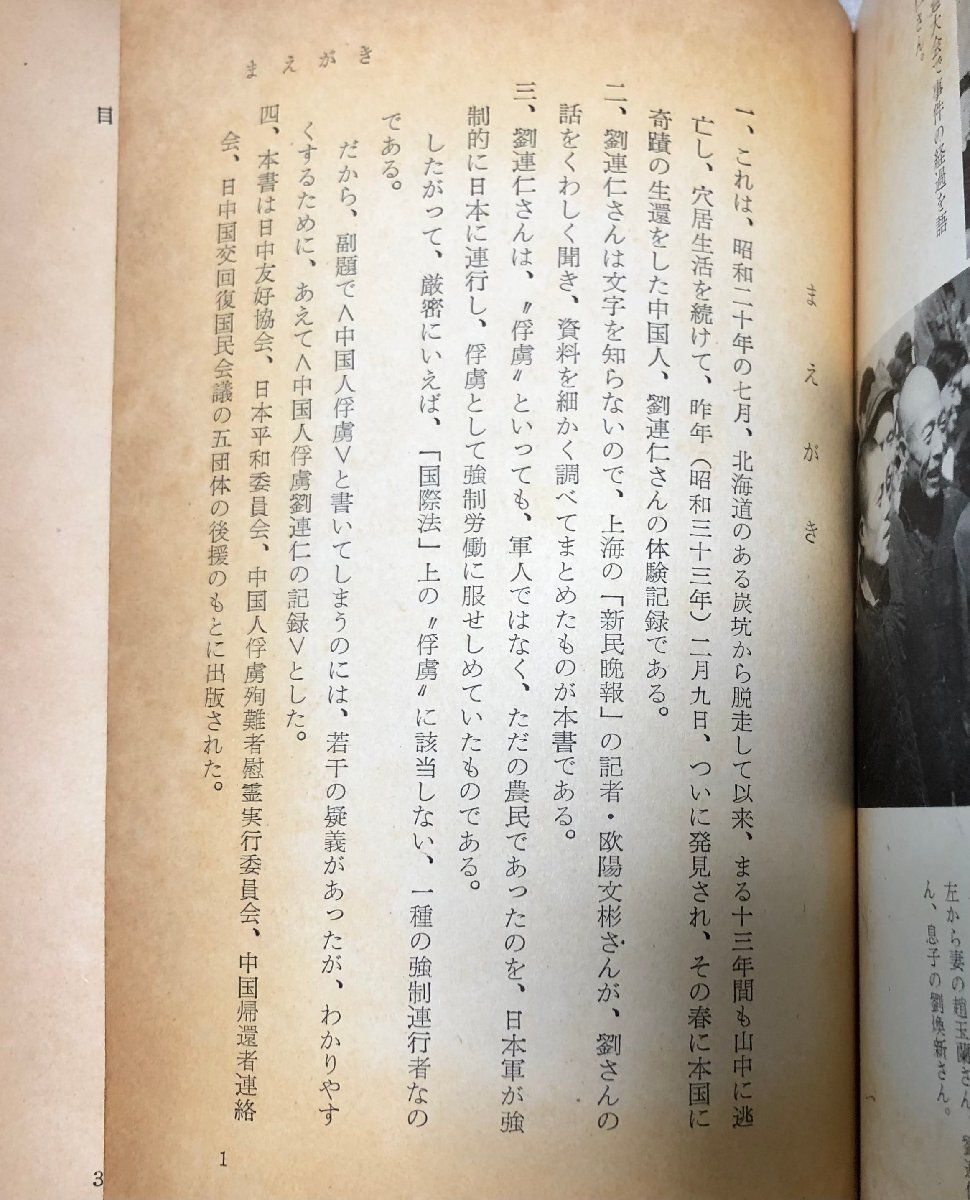 大会で事件の経過を語
さん。
左から妻の趙玉蘭さん
ん、息子の劉煥新さん。
まえがき
一、これは、昭和二十年の七月、北海道のある炭坑から脱走して以来、まる十三年間も山中に逃
亡し、穴居生活を続けて、昨年（昭和三十三年）二月九日、ついに発見され、その春に本国に
奇蹟の生還をした中国人、劉連仁さんの体験記録である。
二、劉連仁さんは文字を知らないので、上海の「新民晩報」の記者・欧陽文彬さんが、劉さんの
話をくわしく聞き、資料を細かく調べてまとめたものが本書である。
三、劉連仁さんは、〝俘虜〟といっても、軍人ではなく、ただの農民であったのを、日本軍が強
制的に日本に連行し、俘虜として強制労働に服せしめていたものである。
したがって、厳密にいえば、「国際法」上の〝俘虜〟に該当しない、一種の強制連行者なの
である。
だから、副題で＜中国人俘虜＞と書いてしまうのには、若干の疑義があったが、わかりやす
くするために、あえて＜中国人俘虜劉連仁の記録＞とした。
四、本書は日中友好協会、日本平和委員会、中国人俘虜殉難者慰霊実行委員会、中国帰還者連絡
会、日中国交回復国民会議の五団体の後援のもとに出版された。
まえがき
1
目
3